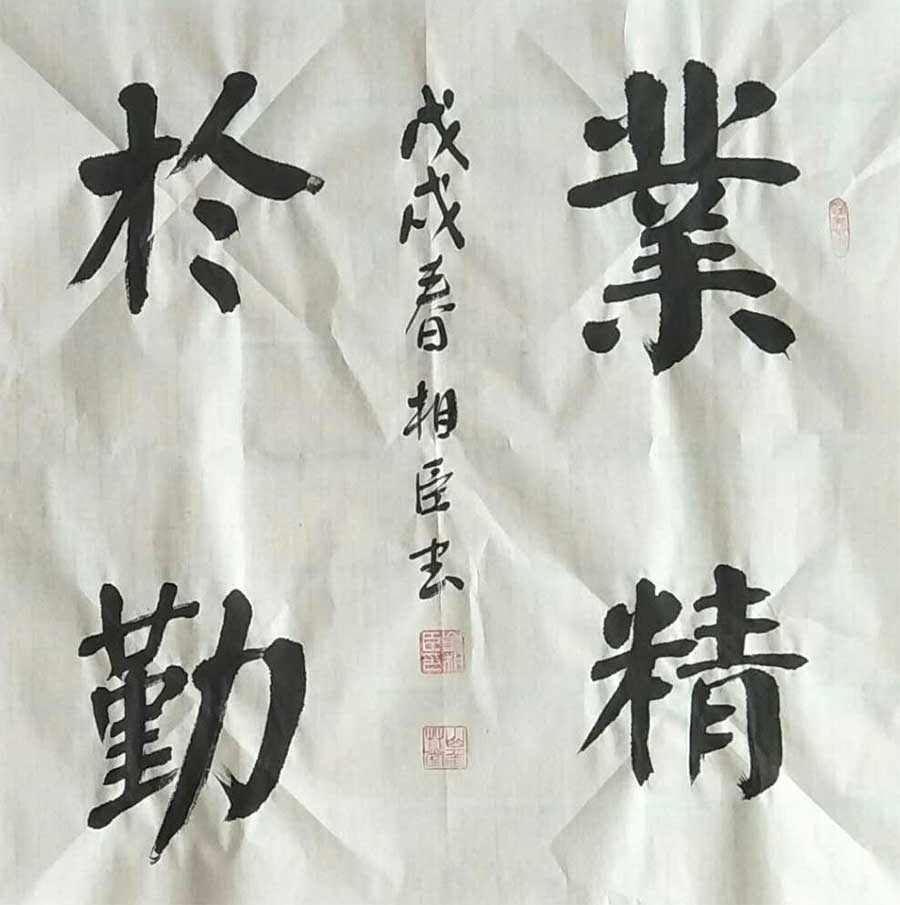 業精
於勤
戊戌春相臣书